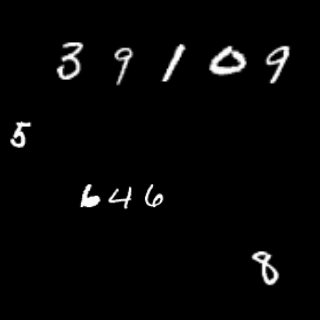 39109
5
646
8